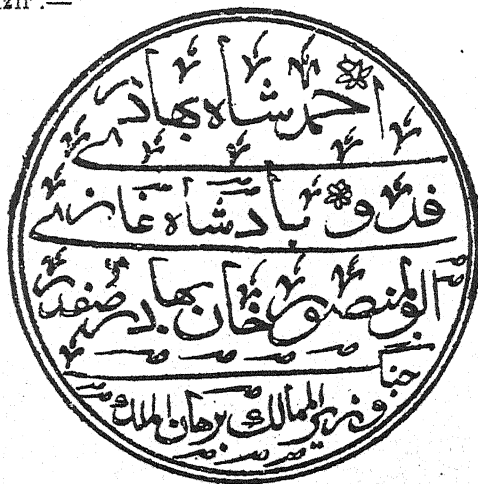 احمد شاه بهادر
فدوی بادشاه غازی
ابو المنصور خان بهادر صفدر
جنگ
وزیر الممالک برهان الملک